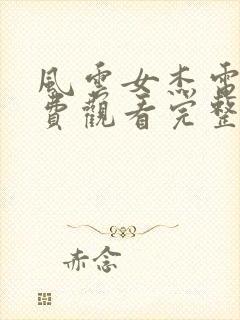 風雲女杰電
費觀看完整
赤念